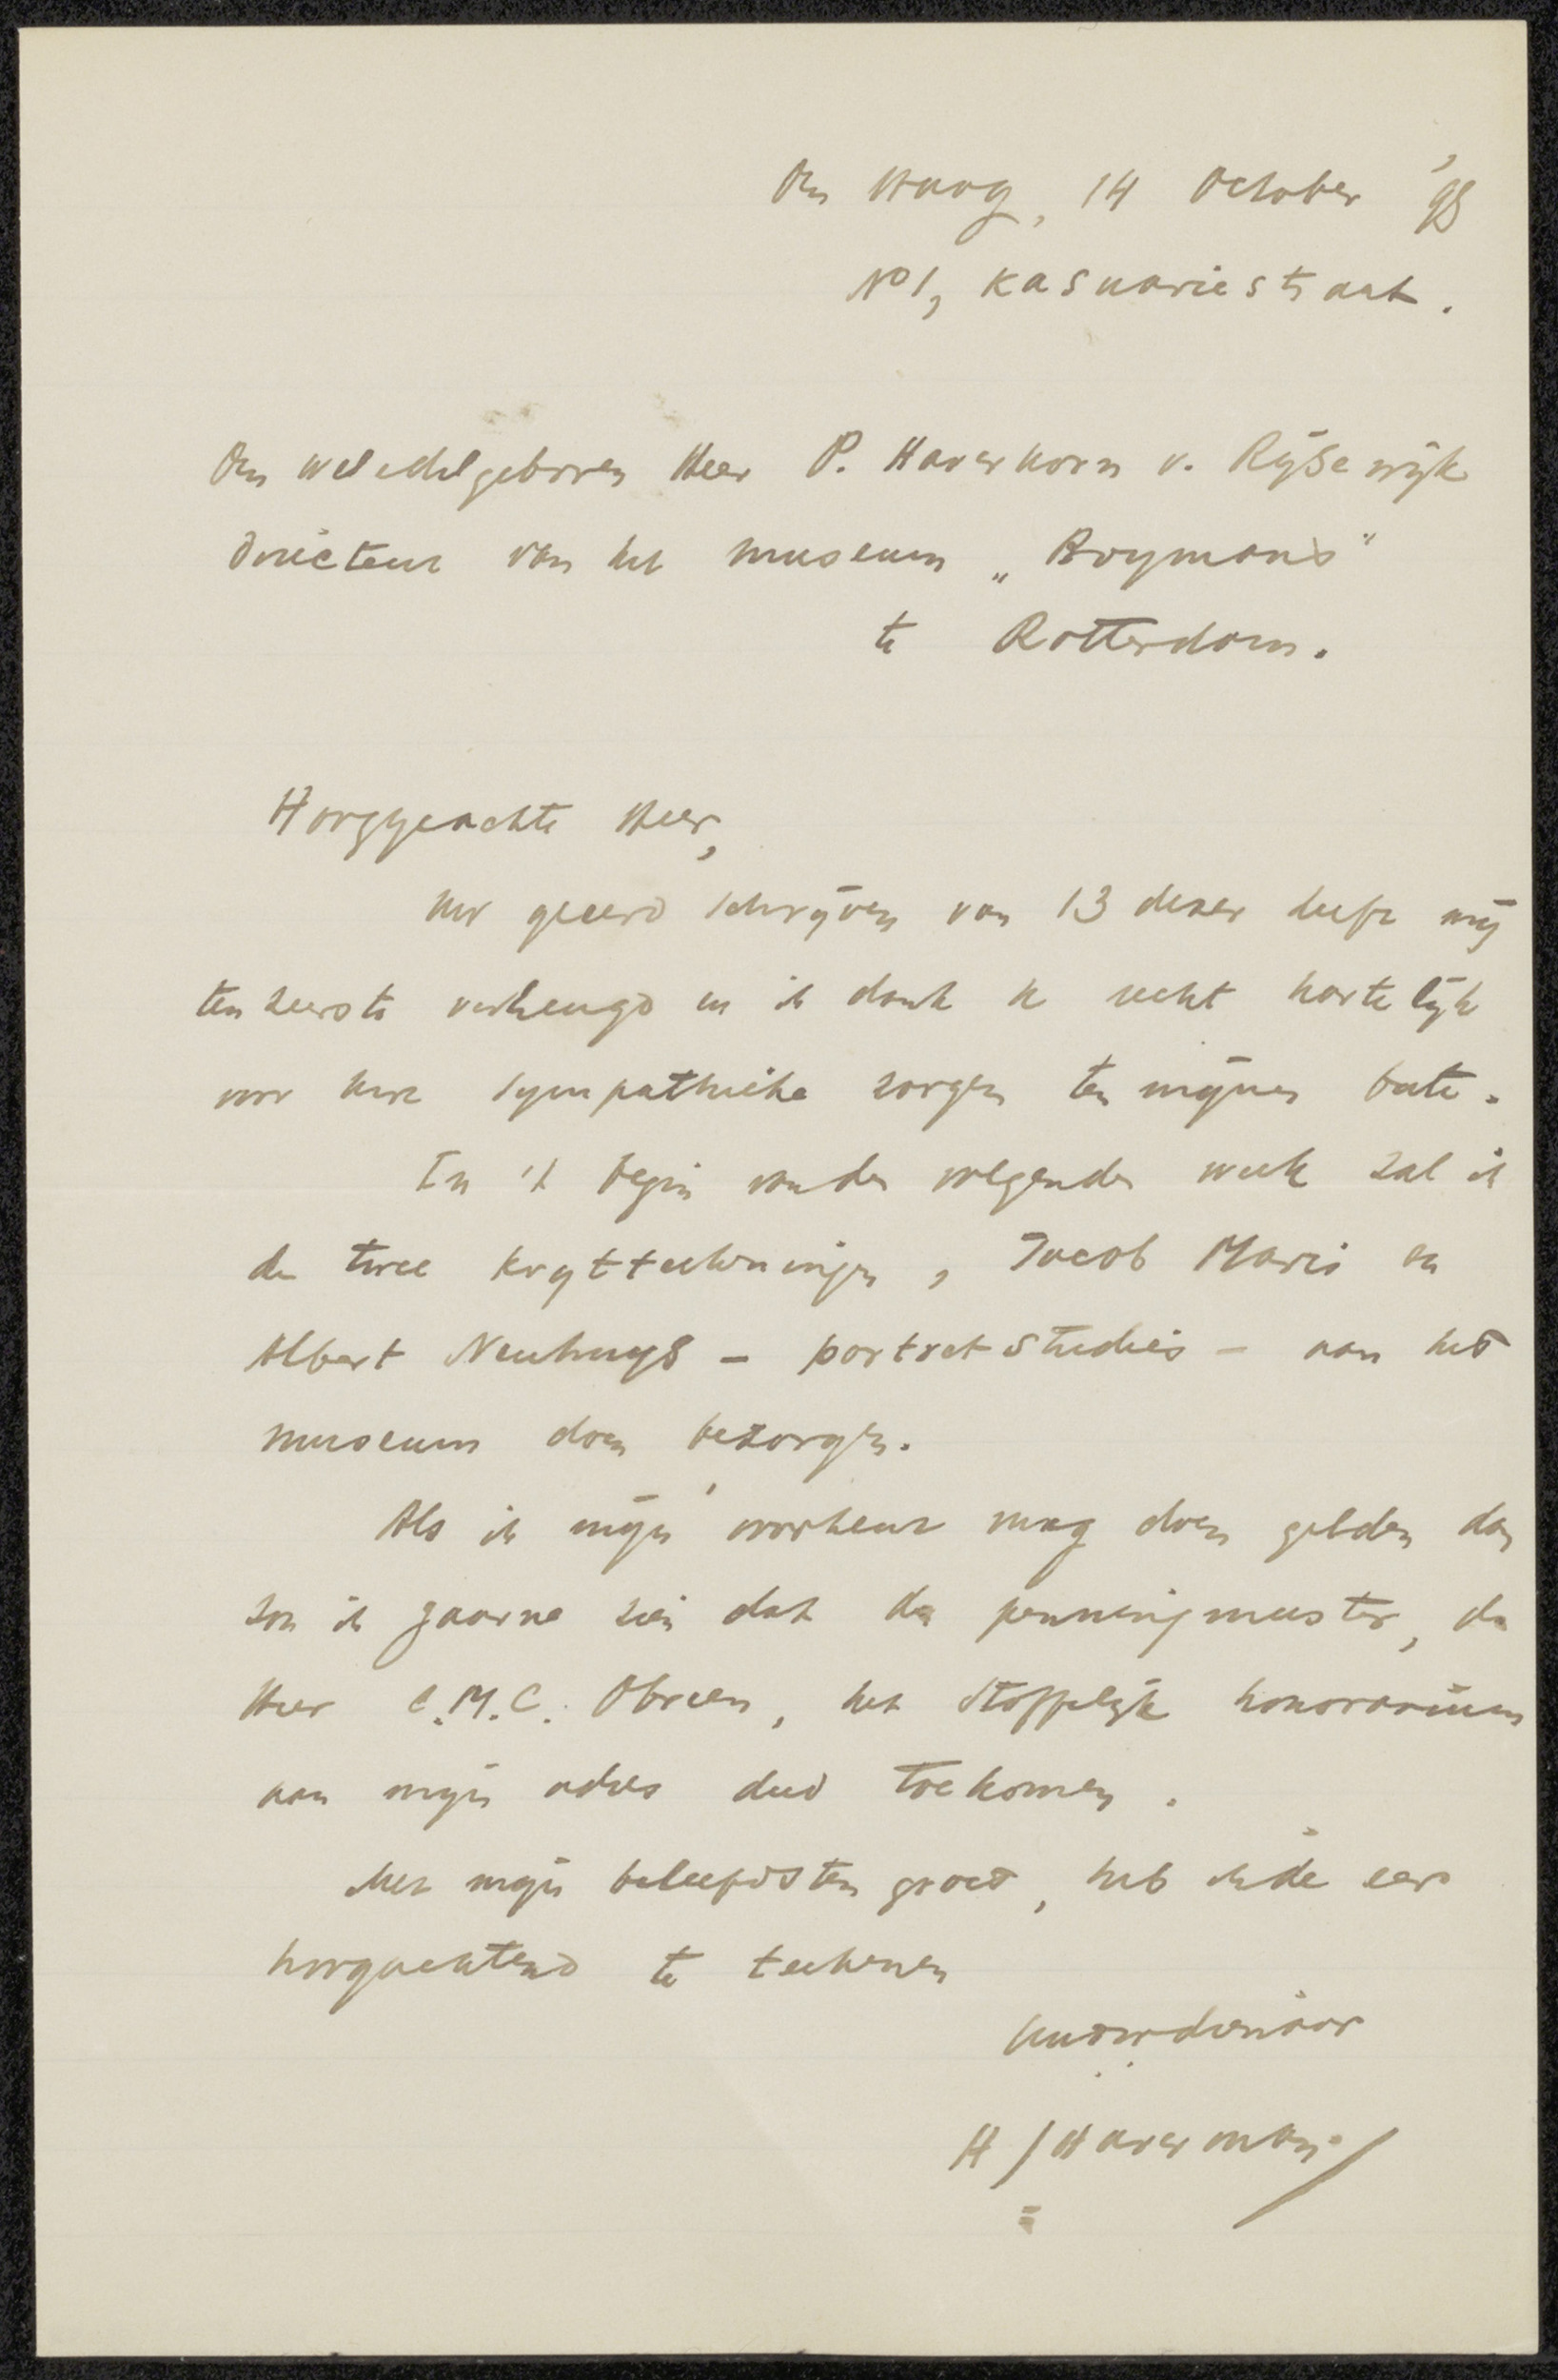 Den Haag, 14 October '98
No 1, Kasuariestraat.
Den weledelgeboren Heer P. Haverkorn v. Rijsewijk
Directeur van het museum „Boymans"
te Rotterdam.
Hooggeachte Heer,
Uw geeerd schrijven van 13 dezer heeft mij
ten zeerste verheugd en ik dank u recht hartelijk
voor uwe sympathieke zorgen ten mijnen bate.
In 't begin van de volgende week zal ik
de twee krytteekeningen, Jacob Maris en
Albert Neuhuys – portretstudies – aan het
museum doen bezorgen.
Als ik mijn voorkeur mag doen gelden dan
zou ik gaarne zien dat de penningmeester, de
Heer C.M.C. Obreen, het stoffelijk honorarium
aan mijn adres deed toekomen.
Met mijn beleefdsten groet, heb ik de eer
hoogachtend te teekenen
Uw dw dienaar
H J Haverman